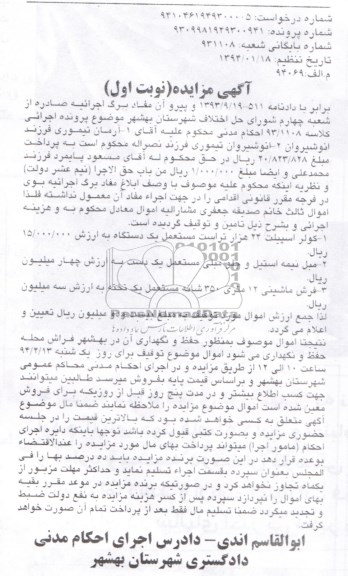 شماره درخواست: ۹۴۱۰۳۶۱۹۴۹۳۰۰۰۰۵
شماره پرونده: ۹۳۰۹۹۸۱۹۴۹۳۰۰۹۴۱
شماره بایگانی شعبه: ۹۳۱۱۰۸
تاریخ تنظیم: ۱۳۹۴/۰۱/۱۸
م.الف: ۹۴۰۶۹
آگهی مزایده(نوبت اول)
برابر با دادنامه ۵۱۱-۱۳۹۳/۹/۱۹ و پیرو آن مفاد برگ اجرائیه صادره از
شعبه چهارم شورای حل اختلاف شهرستان بهشهر موضوع پرونده اجرائی
کلاسه ۹۳/۱۱۰۸ احکام مدنی محکوم علیه آقای ۱-آرمان تیموری فرزند
انوشیروان ۲-انوشیروان تیموری فرزند نصراله محکوم است به پرداخت
مبلغ ۲۰/۸۲۳/۸۲۸ ریال در حق محکوم له آقای مسعود پایمرد فرزند
محمدعلی و ایضا مبلغ ۱/۰۰۰/۰۰۰ ریال من باب حق الاجرا (نیم عشر دولت)
و نظربه اینکه محکوم علیه موصوف با وصف ابلاغ مفاد برگ اجرائیه بوی
در فرجه مقرر قانونی اقدامی را در جهت اجراء مفاد آن معمول نداشته فلذا
اموال ثالث خانم صدیقه جعفری مشارالیه اموال معادل محکوم به و هزینه
اجرائی و بشرح ذیل تامین و توقیف گردیده است.
۱-کولر اسپیلت ۲۴ هزار تراست مستعمل یک دستگاه به ارزش ۱۵/۰۰۰/۰۰۰
ریال
۲-مبل نیمه استیل و مستعمل یک دست به ارزش چهار میلیون
ریال
۳-فرش ماشینی ۱۲ متری ۳۵۰ شانه مستعمل یک تخته به ارزش سه میلیون
ریال.
لذا جمع ارزش اموال میلیون ریال تعیین و
اعلام می گردد.
نتیجتا اموال موصوف بمنظور حفظ و نگهداری آن در بهشهر فراش محله
حفظ و نگهداری می شود اموال موضوع توقیف برای روز یک شنبه ۹۴/۲/۱۳
ساعت ۱۰ الی ۱۲ از طریق مزایده و در اجرای احکام مدنی محاکم عمومی
شهرستان بهشهر و براساس قیمت پایه بفروش میرسد طالبین میتوانند
جهت کسب اطلاع بیشتر و در مدت پنج روز قبل از روزیکه برای فروش
معین شده است اموال موضوع مزایده را ملاحظه نمایند ضمنا مال موضوع
آگهی متعلق به کسی خواهد شد بود که بالاترین قیمت را در جلسه
حضوری مزایده و بصورت کتبی قبول کرده باشد توجها باینکه دایره اجرای
احکام (مامور اجرا) میتواند پرداخت بهای مال مورد مزایده را عندالاقتضاء
بوعده قرار دهد در این صورت برنده مزایده باید ده درصد بها را فی
المجلس بعنوان سپرده بقسمت اجراء تسلیم نماید و حداکثر مهلت مزبور از
یکماه تجاوز نخواهد کرد و در صورتیکه برنده مزایده در موعد مقرر بقیه
بهای اموال را نپردازد سپرده پس از کسر هزینه مزایده به نفع دولت ضبط
و تجدید میگردد ضمنا تسلیم مال فقط بعد از پرداخت تمام آن صورت خواهد
گرفت.
ابوالقاسم اندی- دادرس اجرای احکام مدنی
دادگستری شهرستان بهشهر